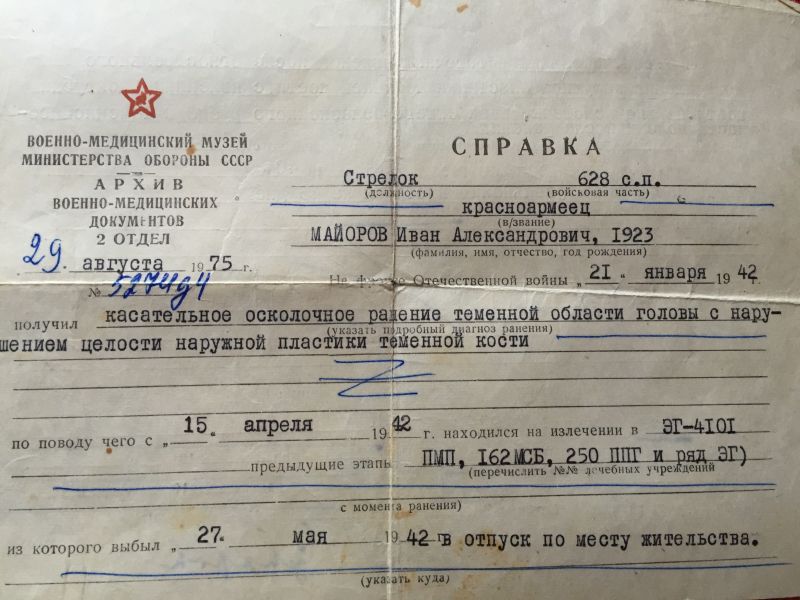 ВОЕННО-МЕДИЦИНСКИЙ МУЗЕЙ
МИНИСТЕРСТВА ОБОРОНЫ СССР
АРХИВ
ВОЕННО-МЕДИЦИНСКИХ
ДОКУМЕНТОВ
2 ОТДЕЛ
29. августа 1975 г.
№
СПРАВКА
Стрелок 628 с.п.
(должность) (войсковая часть)
красноармеец
(в/звание)
МАЙОРОВ Иван Александрович, 1923
(фамилия, имя, отчество, год рождения)
На фронте Отечественной войны „21" января 1942 г.
получил касательное осколочное ранение теменной области головы с нару-
(указать подробный диагноз ранения)
шением целости наружной пластики теменной кости
по поводу чего с „15" апреля 1942 г. находился на излечении в ЭГ-4101
предыдущие этапы ПМП, 162МСБ, 250 ППГ и ряд ЭГ)
(перечислить №№ лечебных учреждений
с момента ранения)
из которого выбыл „27" мая 1942 г. в отпуск по месту жительства.
(указать куда)